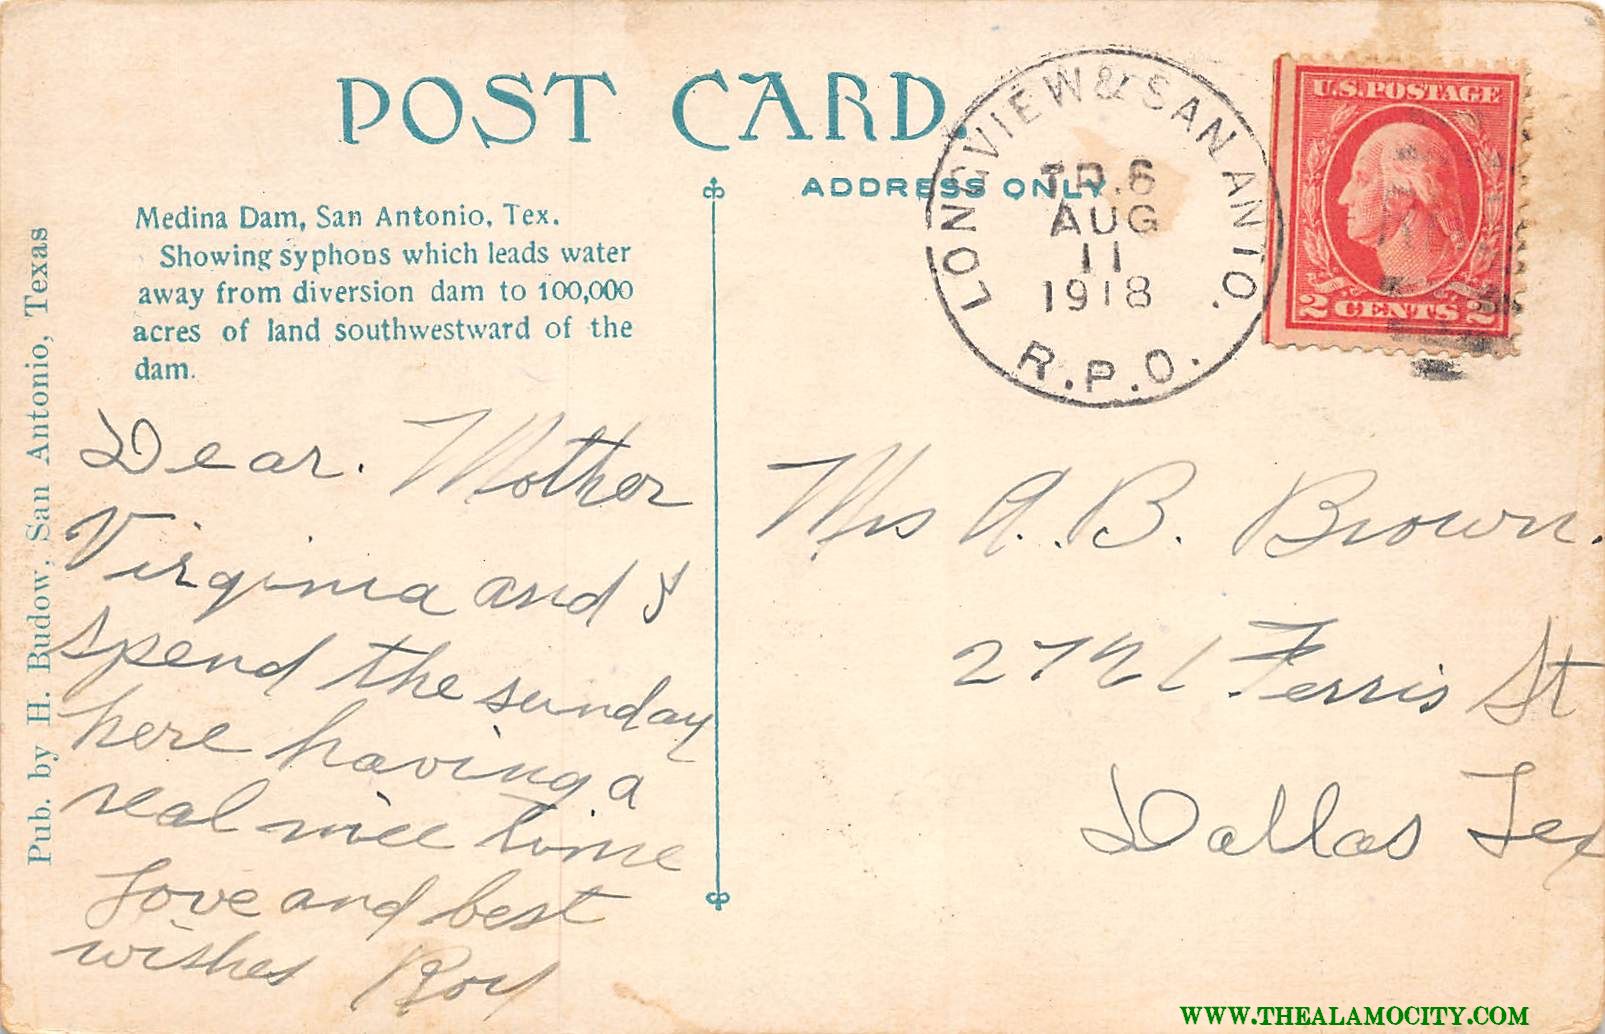 POST CARD.
ADDRESS ONLY.
Medina Dam, San Antonio, Tex.
Showing syphons which leads water
away from diversion dam to 100,000
acres of land southwestward of the
dam.
Pub. by H. Budow, San Antonio, Texas
LONGVIEW & SAN ANTO.
TR.6
AUG
11
1918
R.P.O.
U.S.POSTAGE
2 CENTS 2
Dear. Mother
Virginia and I
spend the sunday
here having a
real nice time
Love and best
wishes Roy
Mrs A. B. Brown.
2721 Ferris St
Dallas Tex
WWW.THEALAMOCITY.COM